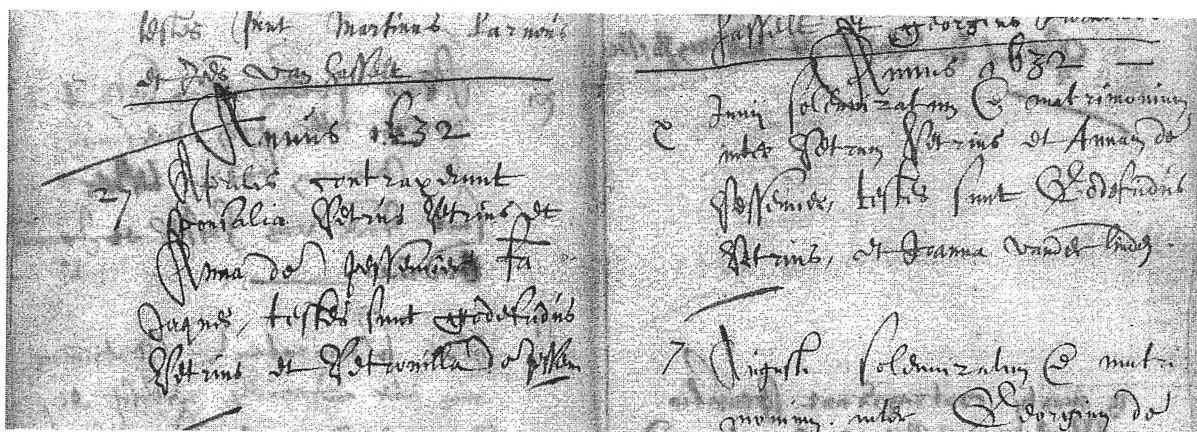 testes sunt Martinus
et Joēs van Hasselt
Annus 1632
27 Aprilis contraxerunt
sponsalia Petrus Petrius et
Anna de Pessemier fa
Jaques, testes sunt godefridus
Petrius et Petronilla de pessem
Hasselt et georgius
Annus 1632
Junij solemnizatum E matrimonium
inter Petrum Petrius et Annam de
Pessemier, testes sunt Godefridus
Petrius, et Joanna vander linden.
7 Augusti solemnizatum E matri
monium inter Georgium de